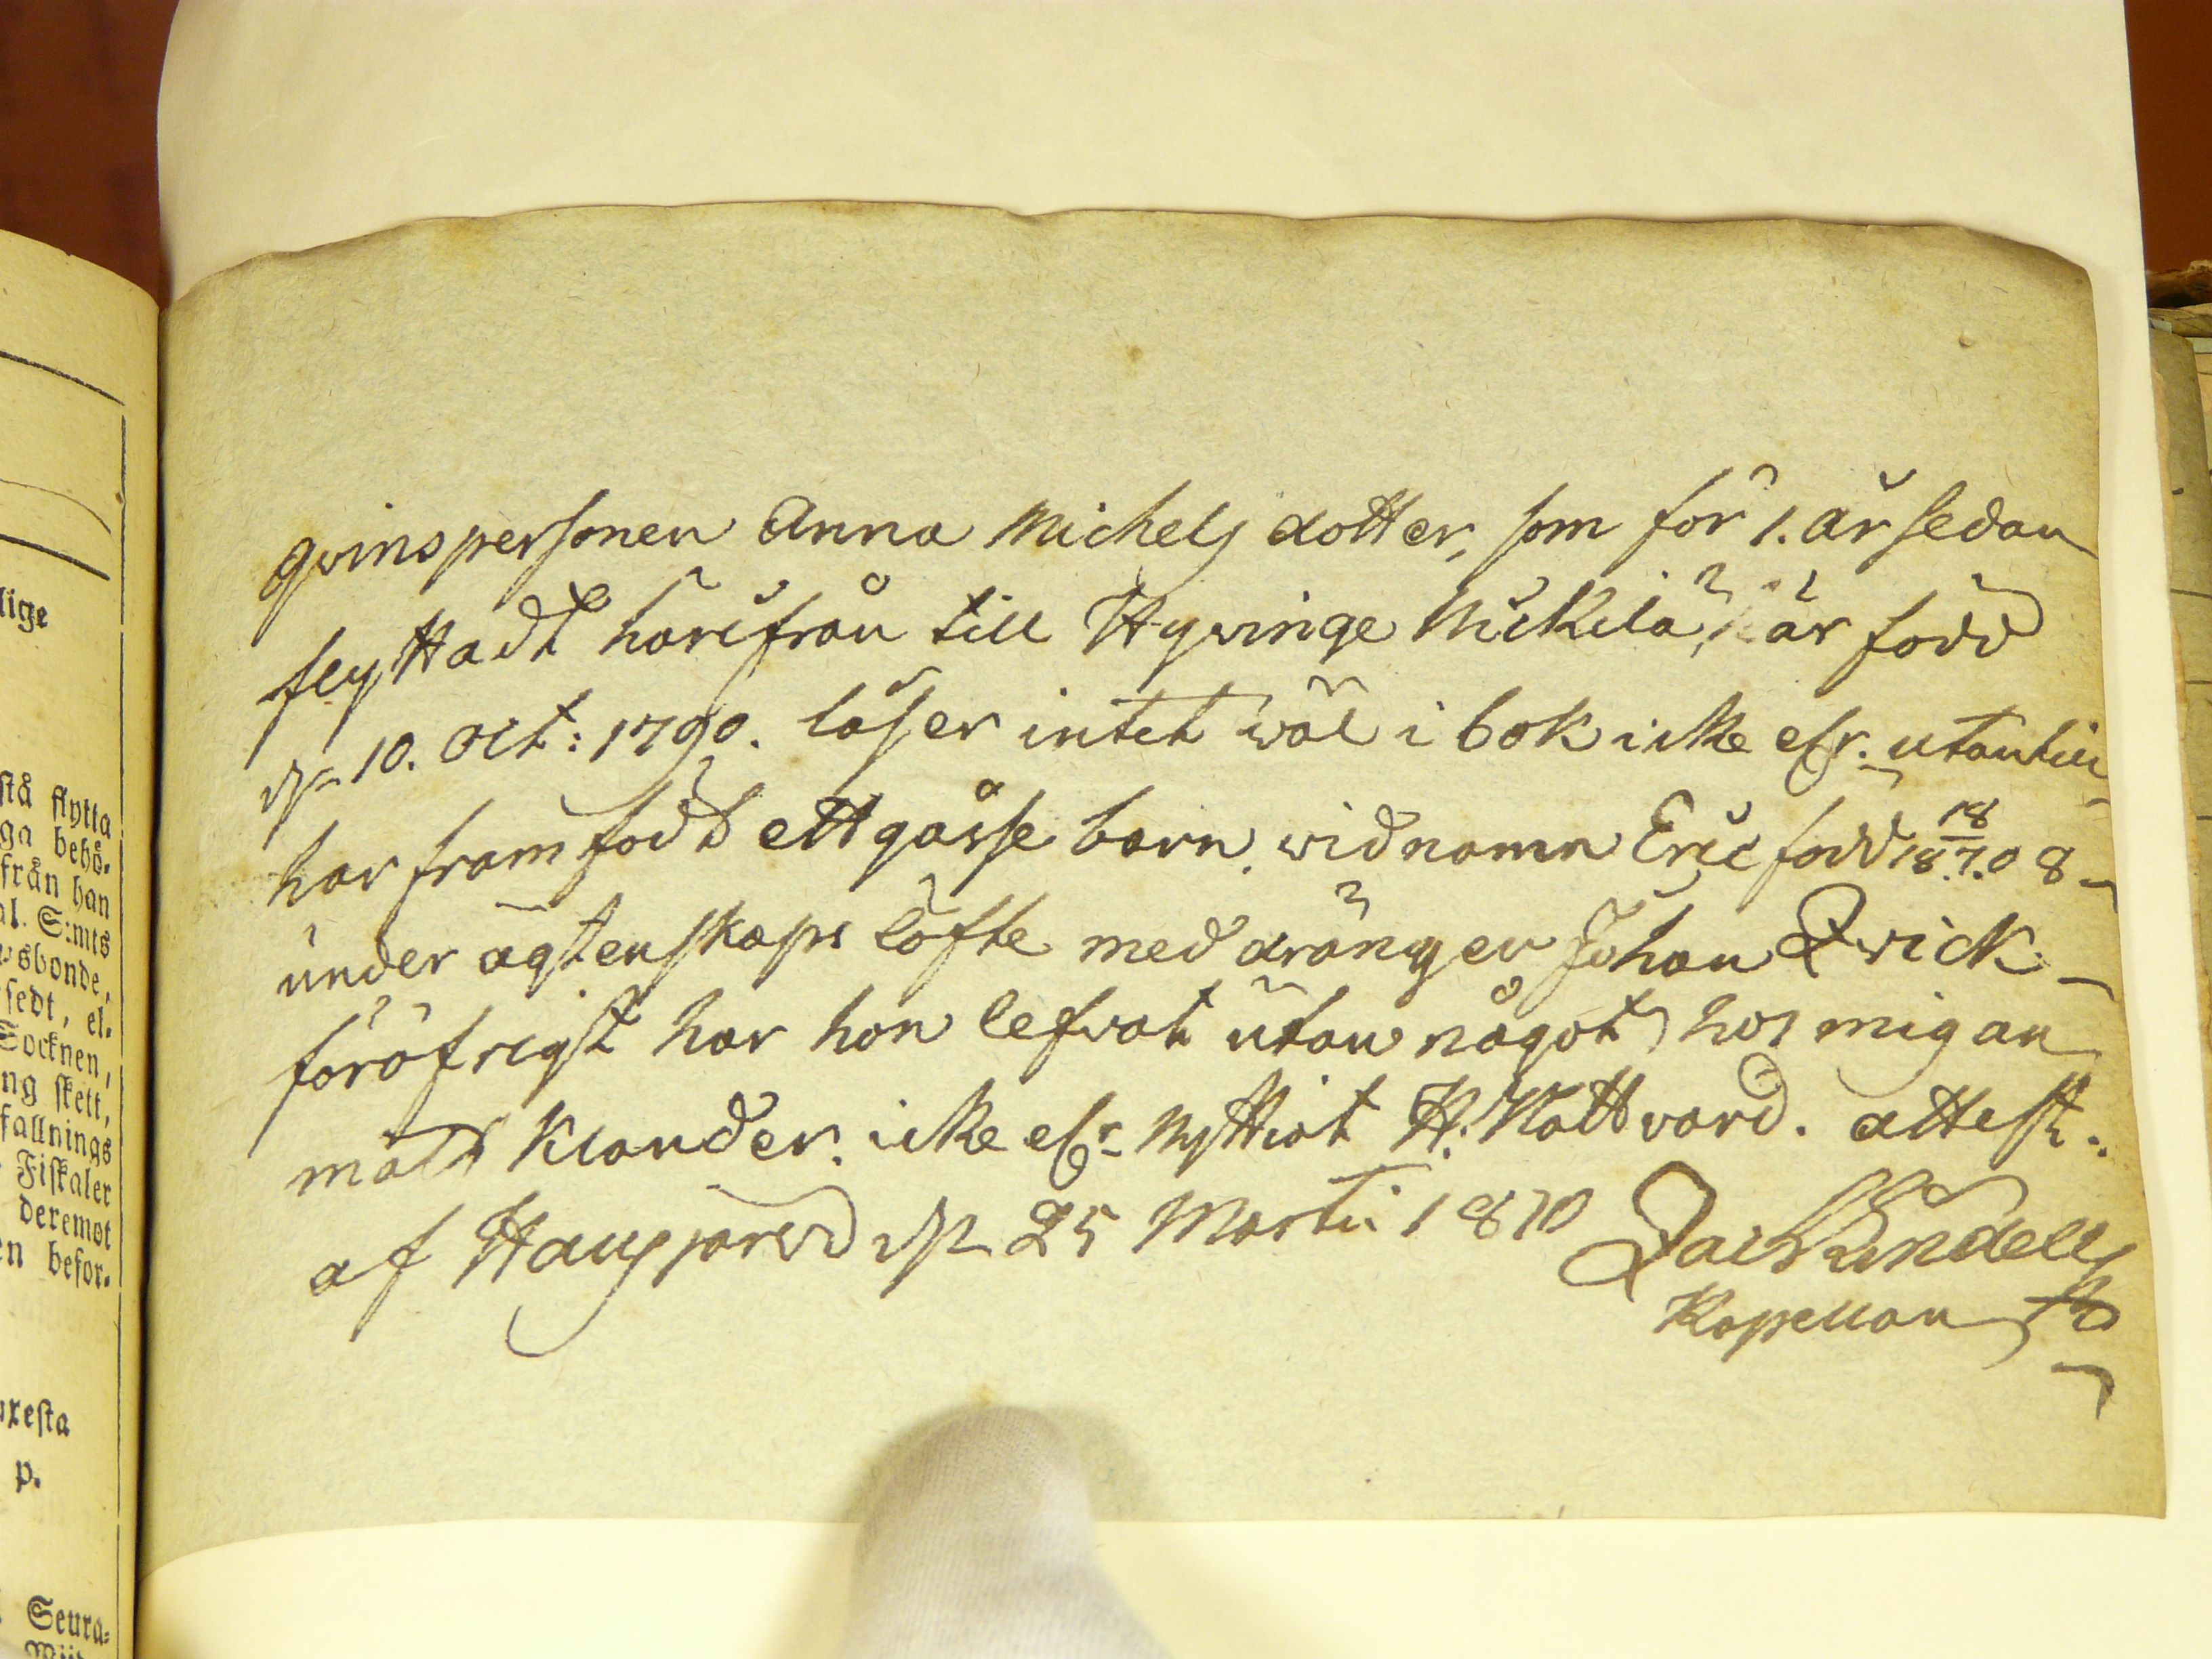 lige
stå flytta
ga behö-
från han
al. S:mts
vsbonde,
sedt, el-
Socknen,
ng skett,
fallnings
Fiskaler
deremot
en befor-
xesta
p.
Seura-
qvinspersonen Anna Michels dotter, som för 1. år sedan
flyttadt härifrån till Hyvinge Mickilä, är född
dn 10. Oct: 1790. läser intet wäl i bok icke elr. utantill
har framfödt ett gåsse barn. wid namn Eric född 18 18/7. 08
under ägtenskaps löfte med drängen Johan Qvick
föröfrigt har hon lefvat utan något hos mig an
mält klander. icke elr nyttiat H. Nattvard. attest.
af Haupjärvi dn 25 Martii 1810
Kapellan